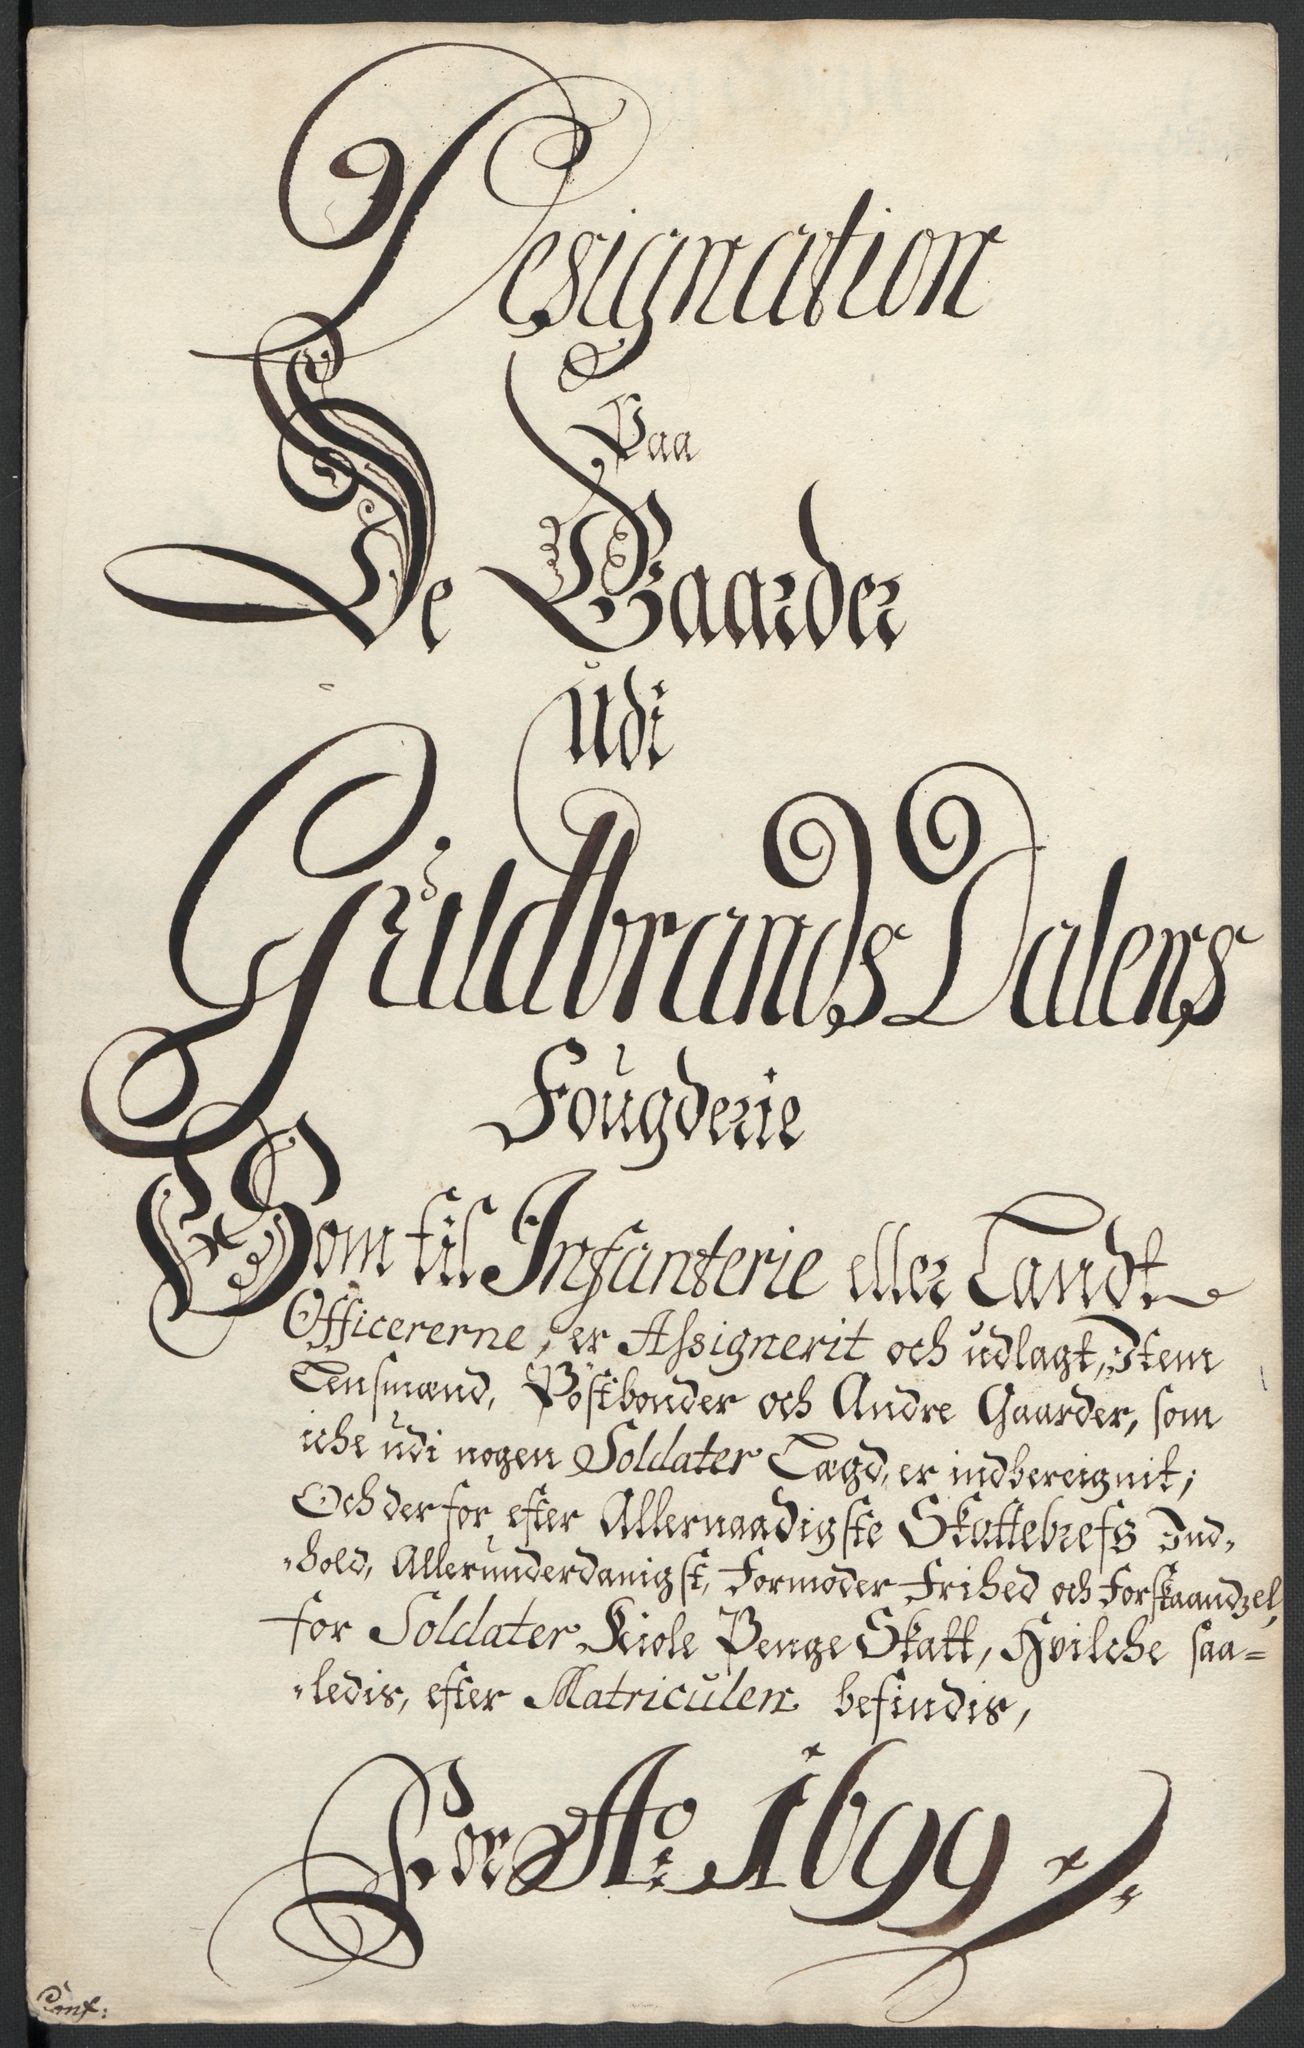 Designation
Paa
De Gaarder
udi
Guldbrands Dalens
Fougderie
Som til Infanterie eller Landt
Officererne, er Assignerit och udlagt, Item
Lensmænd, Postbønder och Andre Gaarder, som
iche udi nogen Soldater Lægd, er indbereignit;
Och derfor efter Allernaadigste Skattebrefs Ind-
-hold, Allerunderdanigst, Formoder Frihed och Forskaandzel,
for Soldater Kiole Penge Skatt, Hvilche saa=
-ledis, efter Matriculen befindis,
For Ao: 1699